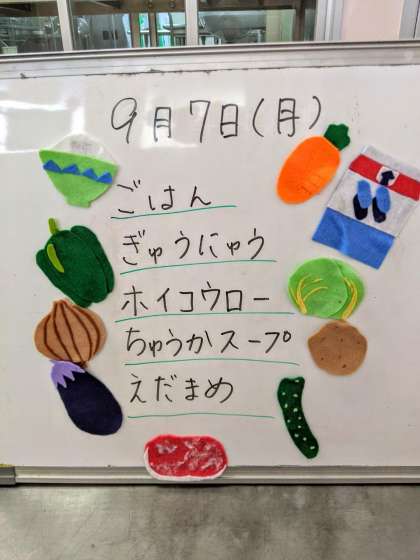 9月7日(月)
ごはん
ぎゅうにゅう
ホイコウロー
ちゅうかスープ
えだまめ